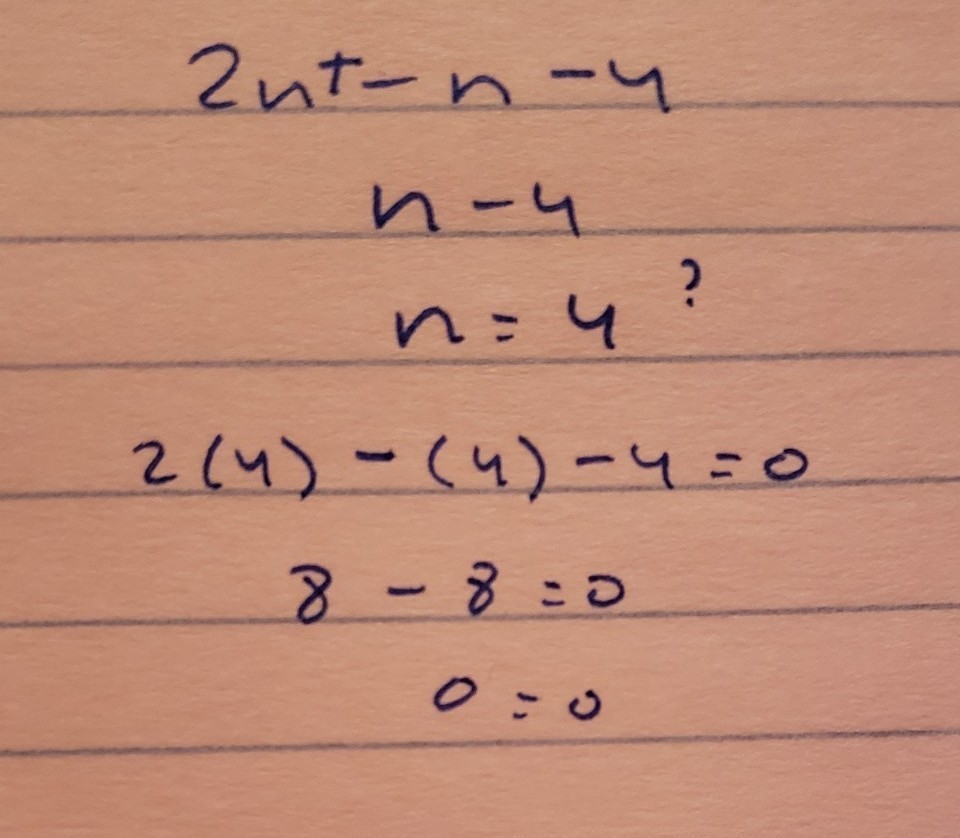 2n+-n-4
n-4
n=4?
2(4)-(4)-4=0
8-8=0
0=0